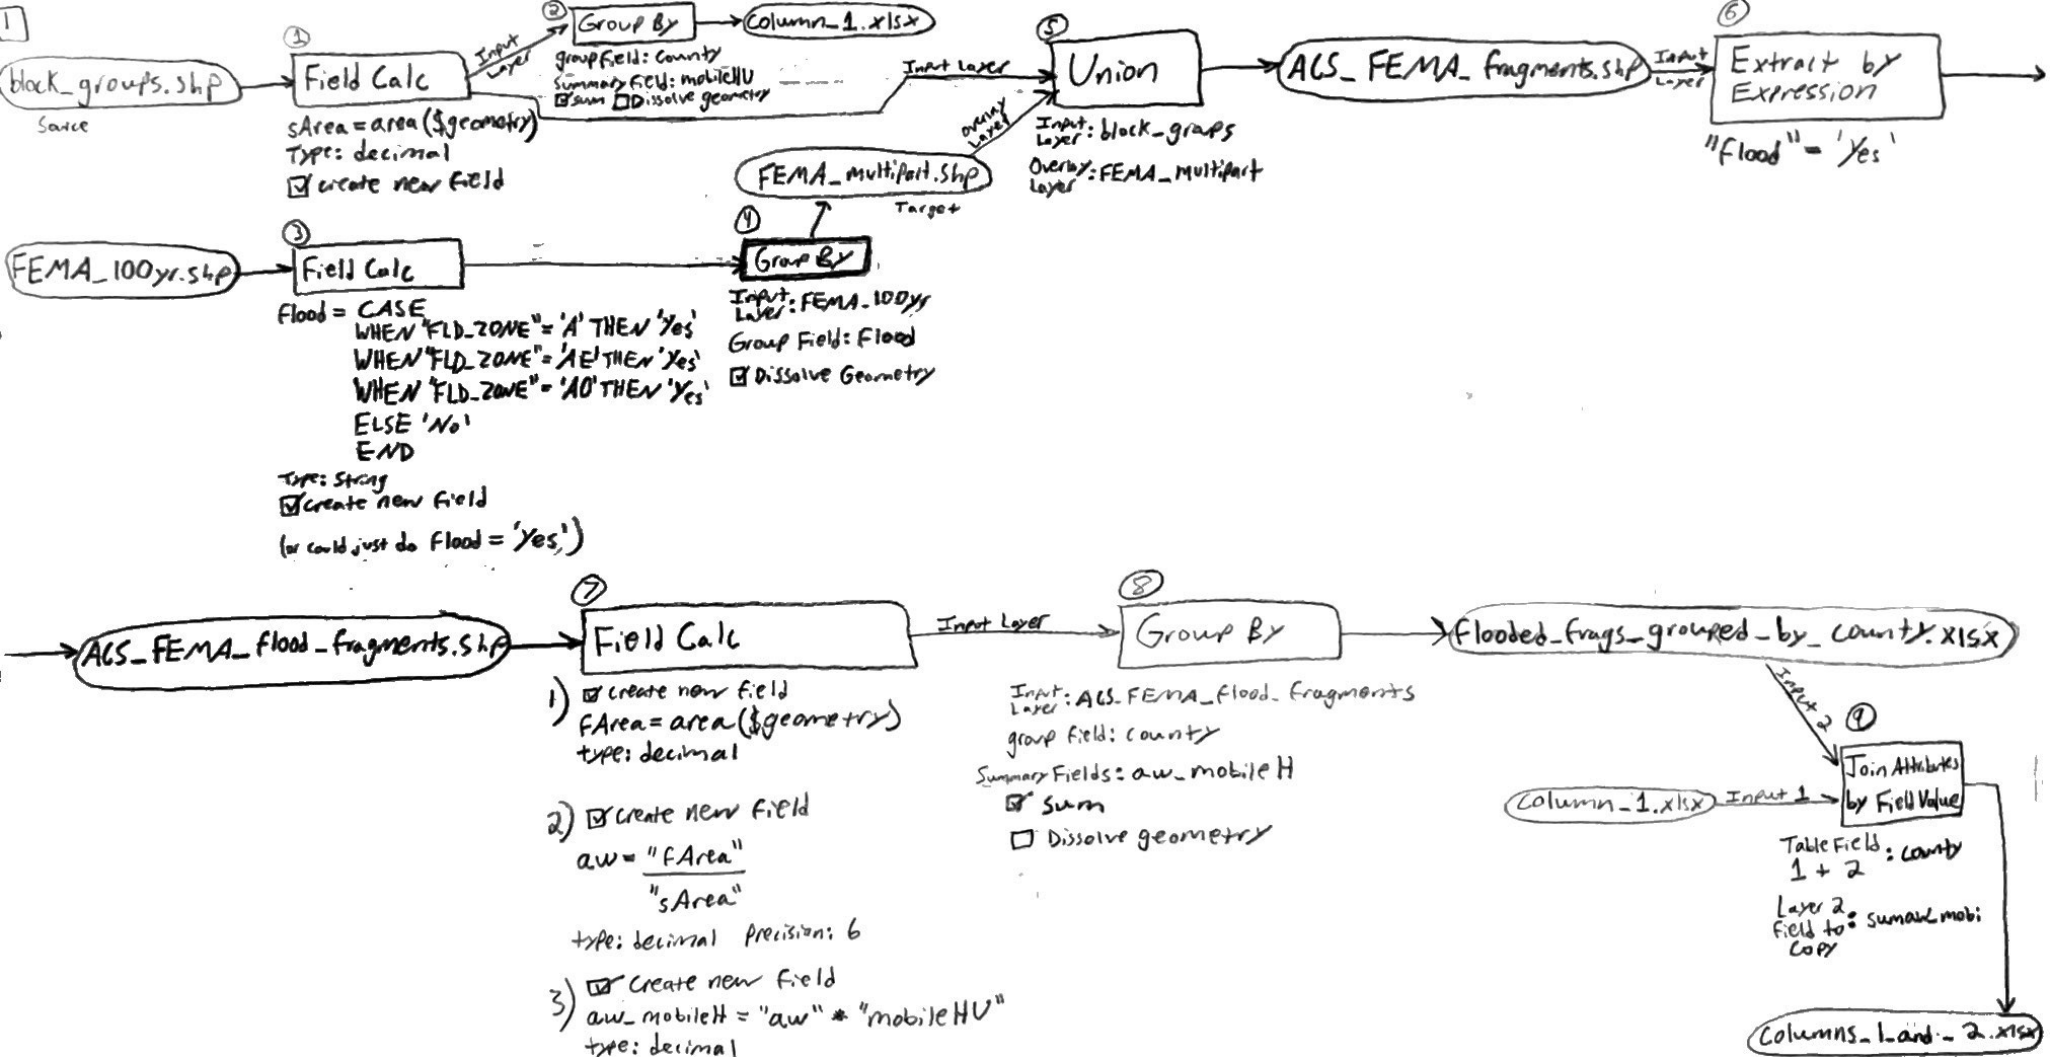 1
block_groups.shp
Source
1
Field Calc
sArea = area($geometry)
Type: decimal
☑ create new field
Input Layer
2
Group By
group field: County
Summary field: mobileHU
☑ sum ☐ Dissolve geometry
column_1.xlsx
Input Layer
Overlay Layer
FEMA_multipart.shp
Target
5
Union
Input Layer: block_groups
Overlay Layer: FEMA_multipart
ACS_FEMA_fragments.shp
Input Layer
6
Extract by
Expression
"flood" = 'Yes'
FEMA_100yr.shp
3
Field Calc
Flood = CASE
WHEN "FLD_ZONE" = 'A' THEN 'Yes'
WHEN "FLD_ZONE" = 'AE' THEN 'Yes'
WHEN "FLD_ZONE" = 'AO' THEN 'Yes'
ELSE 'No'
END
Type: String
☑ create new field
(or could just do Flood = 'Yes')
4
Group By
Input Layer: FEMA_100yr
Group Field: Flood
☑ Dissolve Geometry
ACS_FEMA_flood_fragments.shp
7
Field Calc
1) ☑ create new field
fArea = area($geometry)
type: decimal
2) ☑ create new field
aw = "fArea"
"sArea"
type: decimal precision: 6
3) ☑ create new field
aw_mobileH = "aw" * "mobileHU"
type: decimal
Input Layer
8
Group By
Input Layer: ACS_FEMA_flood_fragments
group field: county
Summary Fields: aw_mobileH
☑ sum
☐ Dissolve geometry
flooded_frags_grouped_by_county.xlsx
Input 2
9
Join Attributes
by Field Value
column_1.xlsx
Input 1
Table Field
1 + 2 : county
Layer 2
field to : sumaw_mobi
copy
columns_1_and_2.xlsx